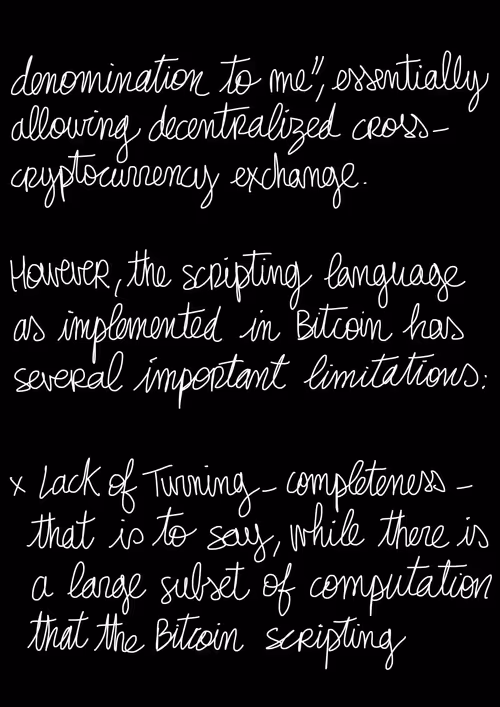 denomination to me", essentially
allowing decentralized cross-
cryptocurrency exchange.
However, the scripting language
as implemented in Bitcoin has
several important limitations:
x Lack of Turning - completeness -
that is to say, while there is
a large subset of computation
that the Bitcoin scripting